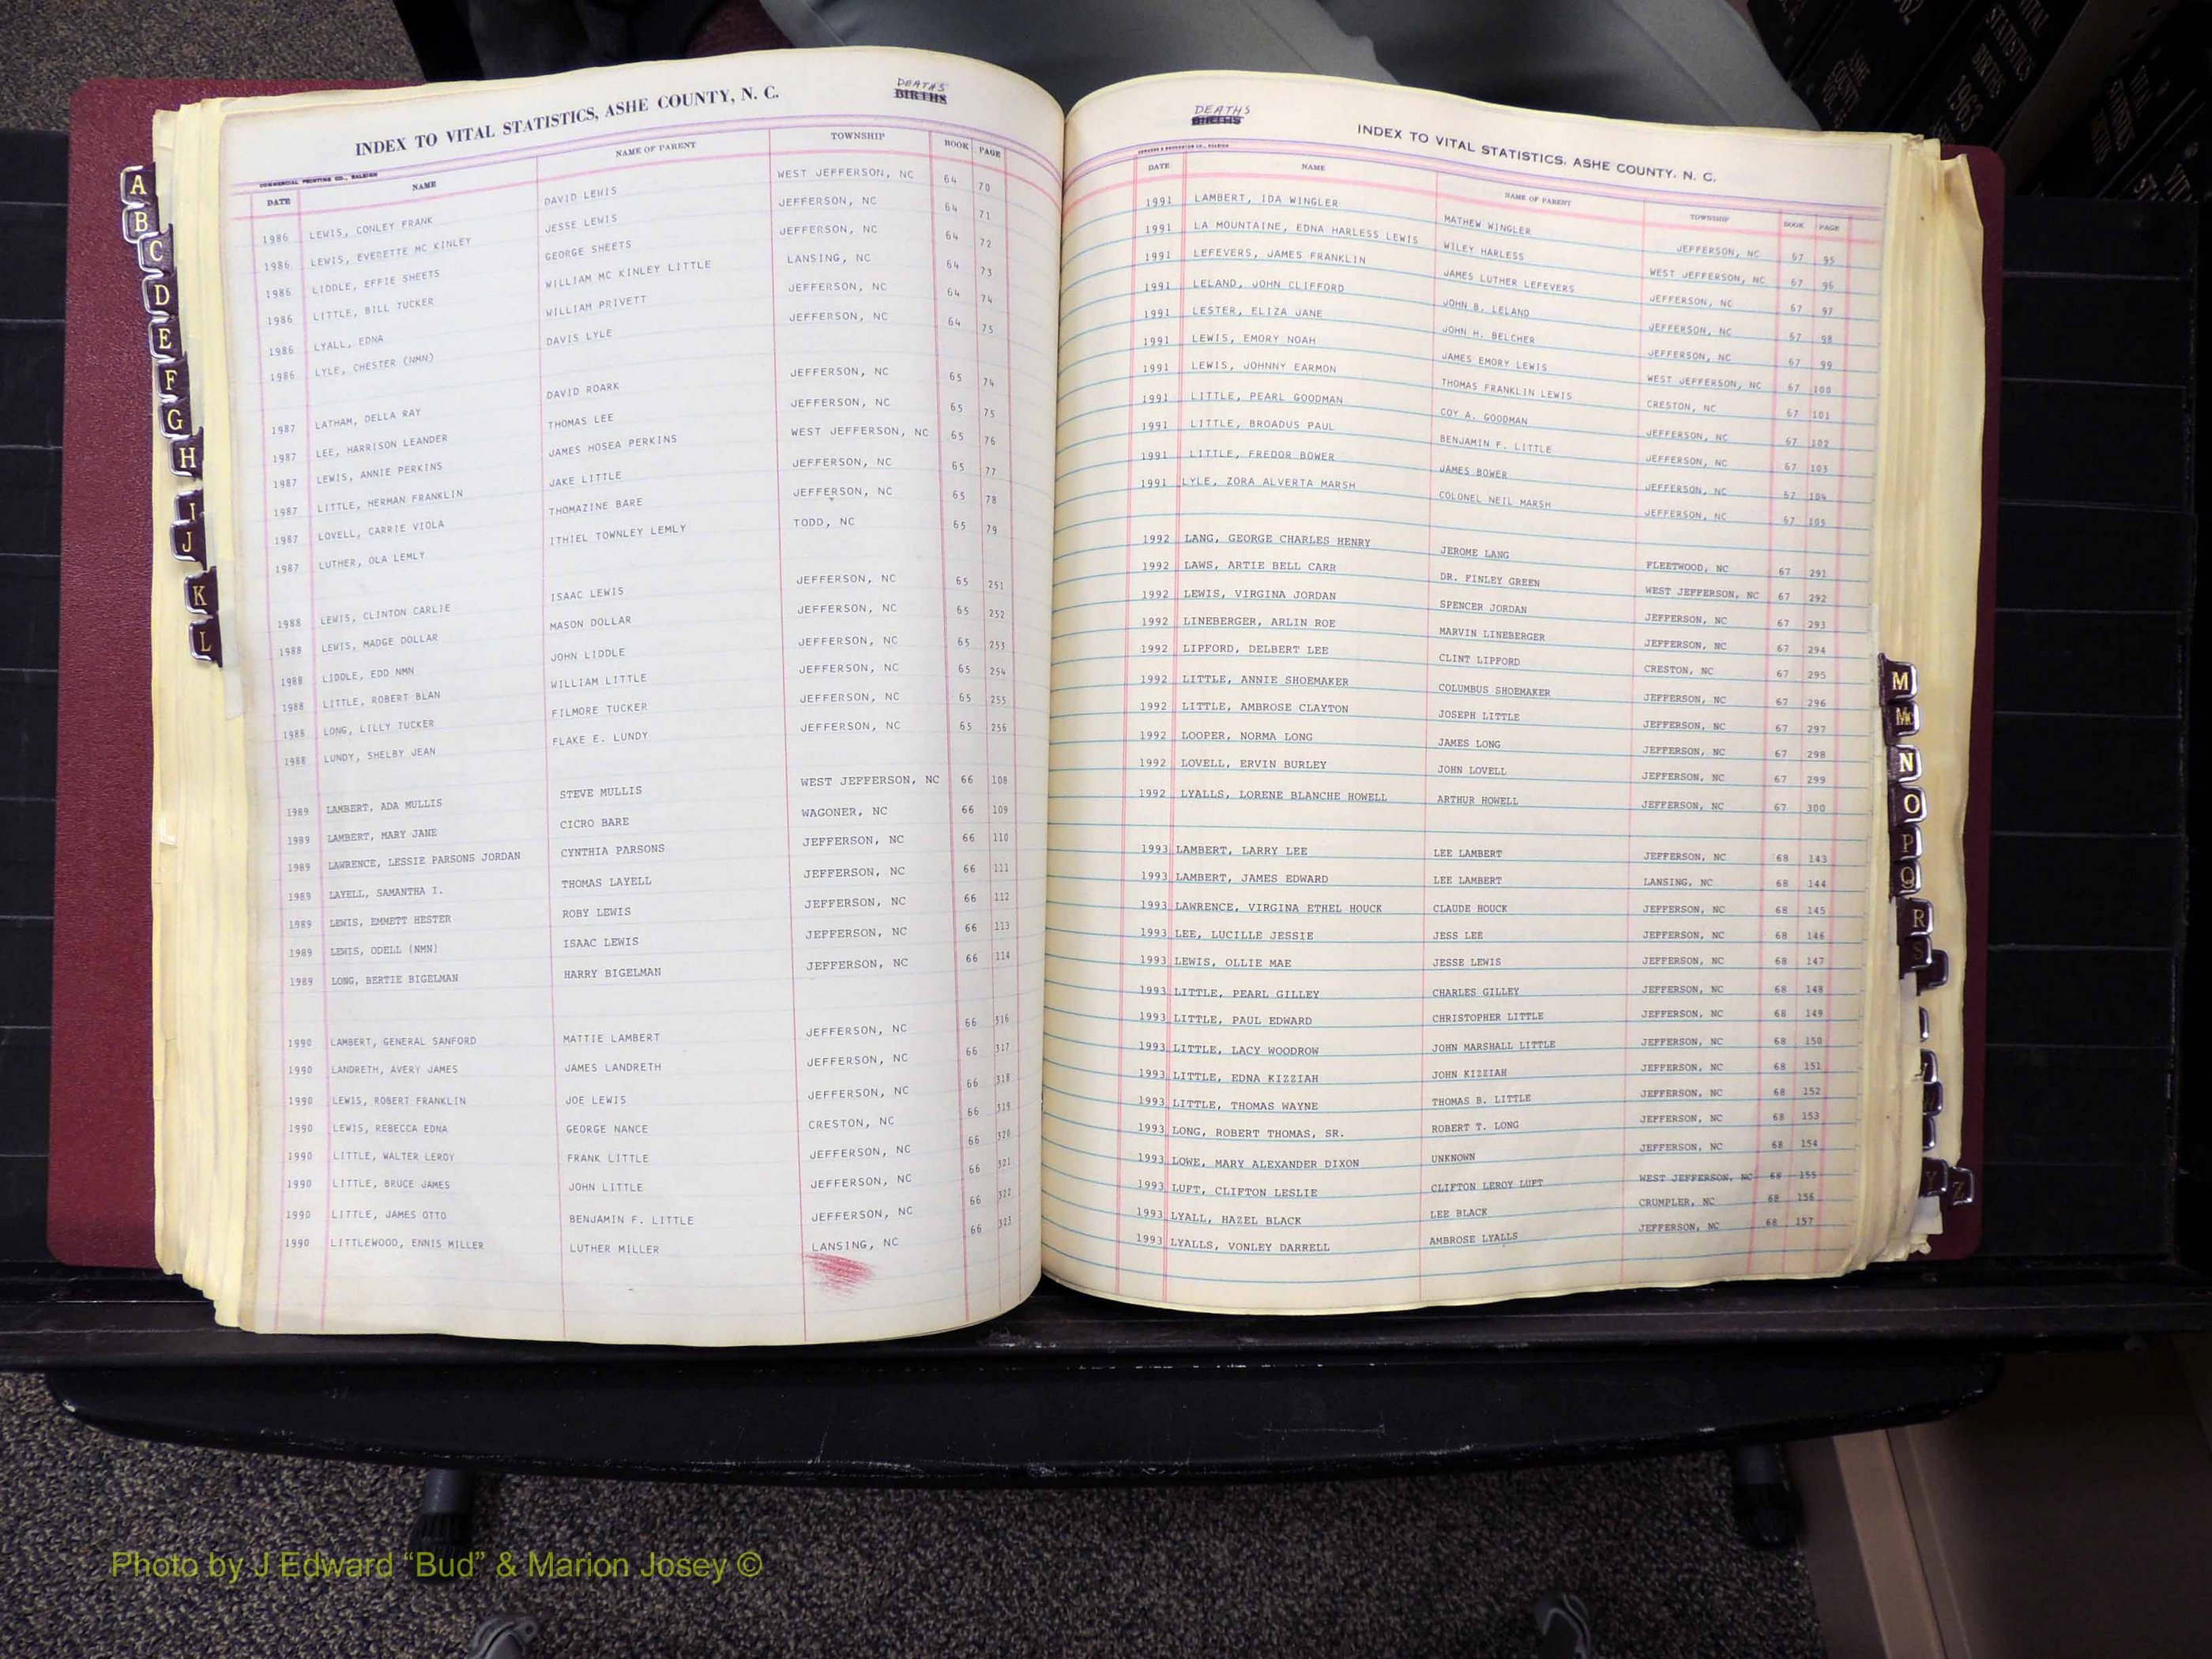 DEATHS
BIRTHS
INDEX TO VITAL STATISTICS, ASHE COUNTY, N. C.
COMMERCIAL PRINTING CO., RALEIGH
DATE NAME NAME OF PARENT TOWNSHIP BOOK PAGE
1986 LEWIS, CONLEY FRANK DAVID LEWIS WEST JEFFERSON, NC 64 70
1986 LEWIS, EVERETTE MC KINLEY JESSE LEWIS JEFFERSON, NC 64 71
1986 LIDDLE, EFFIE SHEETS GEORGE SHEETS JEFFERSON, NC 64 72
1986 LITTLE, BILL TUCKER WILLIAM MC KINLEY LITTLE LANSING, NC 64 73
1986 LYALL, EDNA WILLIAM PRIVETT JEFFERSON, NC 64 74
1986 LYLE, CHESTER (NMN) DAVIS LYLE JEFFERSON, NC 64 75
1987 LATHAM, DELLA RAY DAVID ROARK JEFFERSON, NC 65 74
1987 LEE, HARRISON LEANDER THOMAS LEE JEFFERSON, NC 65 75
1987 LEWIS, ANNIE PERKINS JAMES HOSEA PERKINS WEST JEFFERSON, NC 65 76
1987 LITTLE, HERMAN FRANKLIN JAKE LITTLE JEFFERSON, NC 65 77
1987 LOVELL, CARRIE VIOLA THOMAZINE BARE JEFFERSON, NC 65 78
1987 LUTHER, OLA LEMLY ITHIEL TOWNLEY LEMLY TODD, NC 65 79
1988 LEWIS, CLINTON CARLIE ISAAC LEWIS JEFFERSON, NC 65 251
1988 LEWIS, MADGE DOLLAR MASON DOLLAR JEFFERSON, NC 65 252
1988 LIDDLE, EDD NMN JOHN LIDDLE JEFFERSON, NC 65 253
1988 LITTLE, ROBERT BLAN WILLIAM LITTLE JEFFERSON, NC 65 254
1988 LONG, LILLY TUCKER FILMORE TUCKER JEFFERSON, NC 65 255
1988 LUNDY, SHELBY JEAN FLAKE E. LUNDY JEFFERSON, NC 65 256
1989 LAMBERT, ADA MULLIS STEVE MULLIS WEST JEFFERSON, NC 66 108
1989 LAMBERT, MARY JANE CICRO BARE WAGONER, NC 66 109
1989 LAWRENCE, LESSIE PARSONS JORDAN CYNTHIA PARSONS JEFFERSON, NC 66 110
1989 LAYELL, SAMANTHA I. THOMAS LAYELL JEFFERSON, NC 66 111
1989 LEWIS, EMMETT HESTER ROBY LEWIS JEFFERSON, NC 66 112
1989 LEWIS, ODELL (NMN) ISAAC LEWIS JEFFERSON, NC 66 113
1989 LONG, BERTIE BIGELMAN HARRY BIGELMAN JEFFERSON, NC 66 114
1990 LAMBERT, GENERAL SANFORD MATTIE LAMBERT JEFFERSON, NC 66 316
1990 LANDRETH, AVERY JAMES JAMES LANDRETH JEFFERSON, NC 66 317
1990 LEWIS, ROBERT FRANKLIN JOE LEWIS JEFFERSON, NC 66 318
1990 LEWIS, REBECCA EDNA GEORGE NANCE CRESTON, NC 66 319
1990 LITTLE, WALTER LEROY FRANK LITTLE JEFFERSON, NC 66 320
1990 LITTLE, BRUCE JAMES JOHN LITTLE JEFFERSON, NC 66 321
1990 LITTLE, JAMES OTTO BENJAMIN F. LITTLE JEFFERSON, NC 66 322
1990 LITTLEWOOD, ENNIS MILLER LUTHER MILLER LANSING, NC 66 323
A
B
C
D
E
F
G
H
I
J
K
L
DEATHS
INDEX TO VITAL STATISTICS, ASHE COUNTY, N. C.
DATE NAME NAME OF PARENT TOWNSHIP BOOK PAGE
1991 LAMBERT, IDA WINGLER MATHEW WINGLER JEFFERSON, NC 67 95
1991 LA MOUNTAINE, EDNA HARLESS LEWIS WILEY HARLESS WEST JEFFERSON, NC 67 96
1991 LEFEVERS, JAMES FRANKLIN JAMES LUTHER LEFEVERS JEFFERSON, NC 67 97
1991 LELAND, JOHN CLIFFORD JOHN B. LELAND JEFFERSON, NC 67 98
1991 LESTER, ELIZA JANE JOHN H. BELCHER JEFFERSON, NC 67 99
1991 LEWIS, EMORY NOAH JAMES EMORY LEWIS WEST JEFFERSON, NC 67 100
1991 LEWIS, JOHNNY EARMON THOMAS FRANKLIN LEWIS CRESTON, NC 67 101
1991 LITTLE, PEARL GOODMAN COY A. GOODMAN JEFFERSON, NC 67 102
1991 LITTLE, BROADUS PAUL BENJAMIN F. LITTLE JEFFERSON, NC 67 103
1991 LITTLE, FREDOR BOWER JAMES BOWER JEFFERSON, NC 67 104
1991 LYLE, ZORA ALVERTA MARSH COLONEL NEIL MARSH JEFFERSON, NC 67 105
1992 LANG, GEORGE CHARLES HENRY JEROME LANG FLEETWOOD, NC 67 291
1992 LAWS, ARTIE BELL CARR DR. FINLEY GREEN WEST JEFFERSON, NC 67 292
1992 LEWIS, VIRGINA JORDAN SPENCER JORDAN JEFFERSON, NC 67 293
1992 LINEBERGER, ARLIN ROE MARVIN LINEBERGER JEFFERSON, NC 67 294
1992 LIPFORD, DELBERT LEE CLINT LIPFORD CRESTON, NC 67 295
1992 LITTLE, ANNIE SHOEMAKER COLUMBUS SHOEMAKER JEFFERSON, NC 67 296
1992 LITTLE, AMBROSE CLAYTON JOSEPH LITTLE JEFFERSON, NC 67 297
1992 LOOPER, NORMA LONG JAMES LONG JEFFERSON, NC 67 298
1992 LOVELL, ERVIN BURLEY JOHN LOVELL JEFFERSON, NC 67 299
1992 LYALLS, LORENE BLANCHE HOWELL ARTHUR HOWELL JEFFERSON, NC 67 300
1993 LAMBERT, LARRY LEE LEE LAMBERT JEFFERSON, NC 68 143
1993 LAMBERT, JAMES EDWARD LEE LAMBERT LANSING, NC 68 144
1993 LAWRENCE, VIRGINA ETHEL HOUCK CLAUDE HOUCK JEFFERSON, NC 68 145
1993 LEE, LUCILLE JESSIE JESS LEE JEFFERSON, NC 68 146
1993 LEWIS, OLLIE MAE JESSE LEWIS JEFFERSON, NC 68 147
1993 LITTLE, PEARL GILLEY CHARLES GILLEY JEFFERSON, NC 68 148
1993 LITTLE, PAUL EDWARD CHRISTOPHER LITTLE JEFFERSON, NC 68 149
1993 LITTLE, LACY WOODROW JOHN MARSHALL LITTLE JEFFERSON, NC 68 150
1993 LITTLE, EDNA KIZZIAH JOHN KIZZIAH JEFFERSON, NC 68 151
1993 LITTLE, THOMAS WAYNE THOMAS B. LITTLE JEFFERSON, NC 68 152
1993 LONG, ROBERT THOMAS, SR. ROBERT T. LONG JEFFERSON, NC 68 153
1993 LOWE, MARY ALEXANDER DIXON UNKNOWN JEFFERSON, NC 68 154
1993 LUFT, CLIFTON LESLIE CLIFTON LEROY LUFT WEST JEFFERSON, NC 68 155
1993 LYALL, HAZEL BLACK LEE BLACK CRUMPLER, NC 68 156
1993 LYALLS, VONLEY DARRELL AMBROSE LYALLS JEFFERSON, NC 68 157
M
Mc
N
O
P
Q
R
S
Y
Z
VITAL
STATISTICS
BIRTHS
1963
ASHE
COUNTY
Photo by J Edward “Bud” & Marion Josey ©